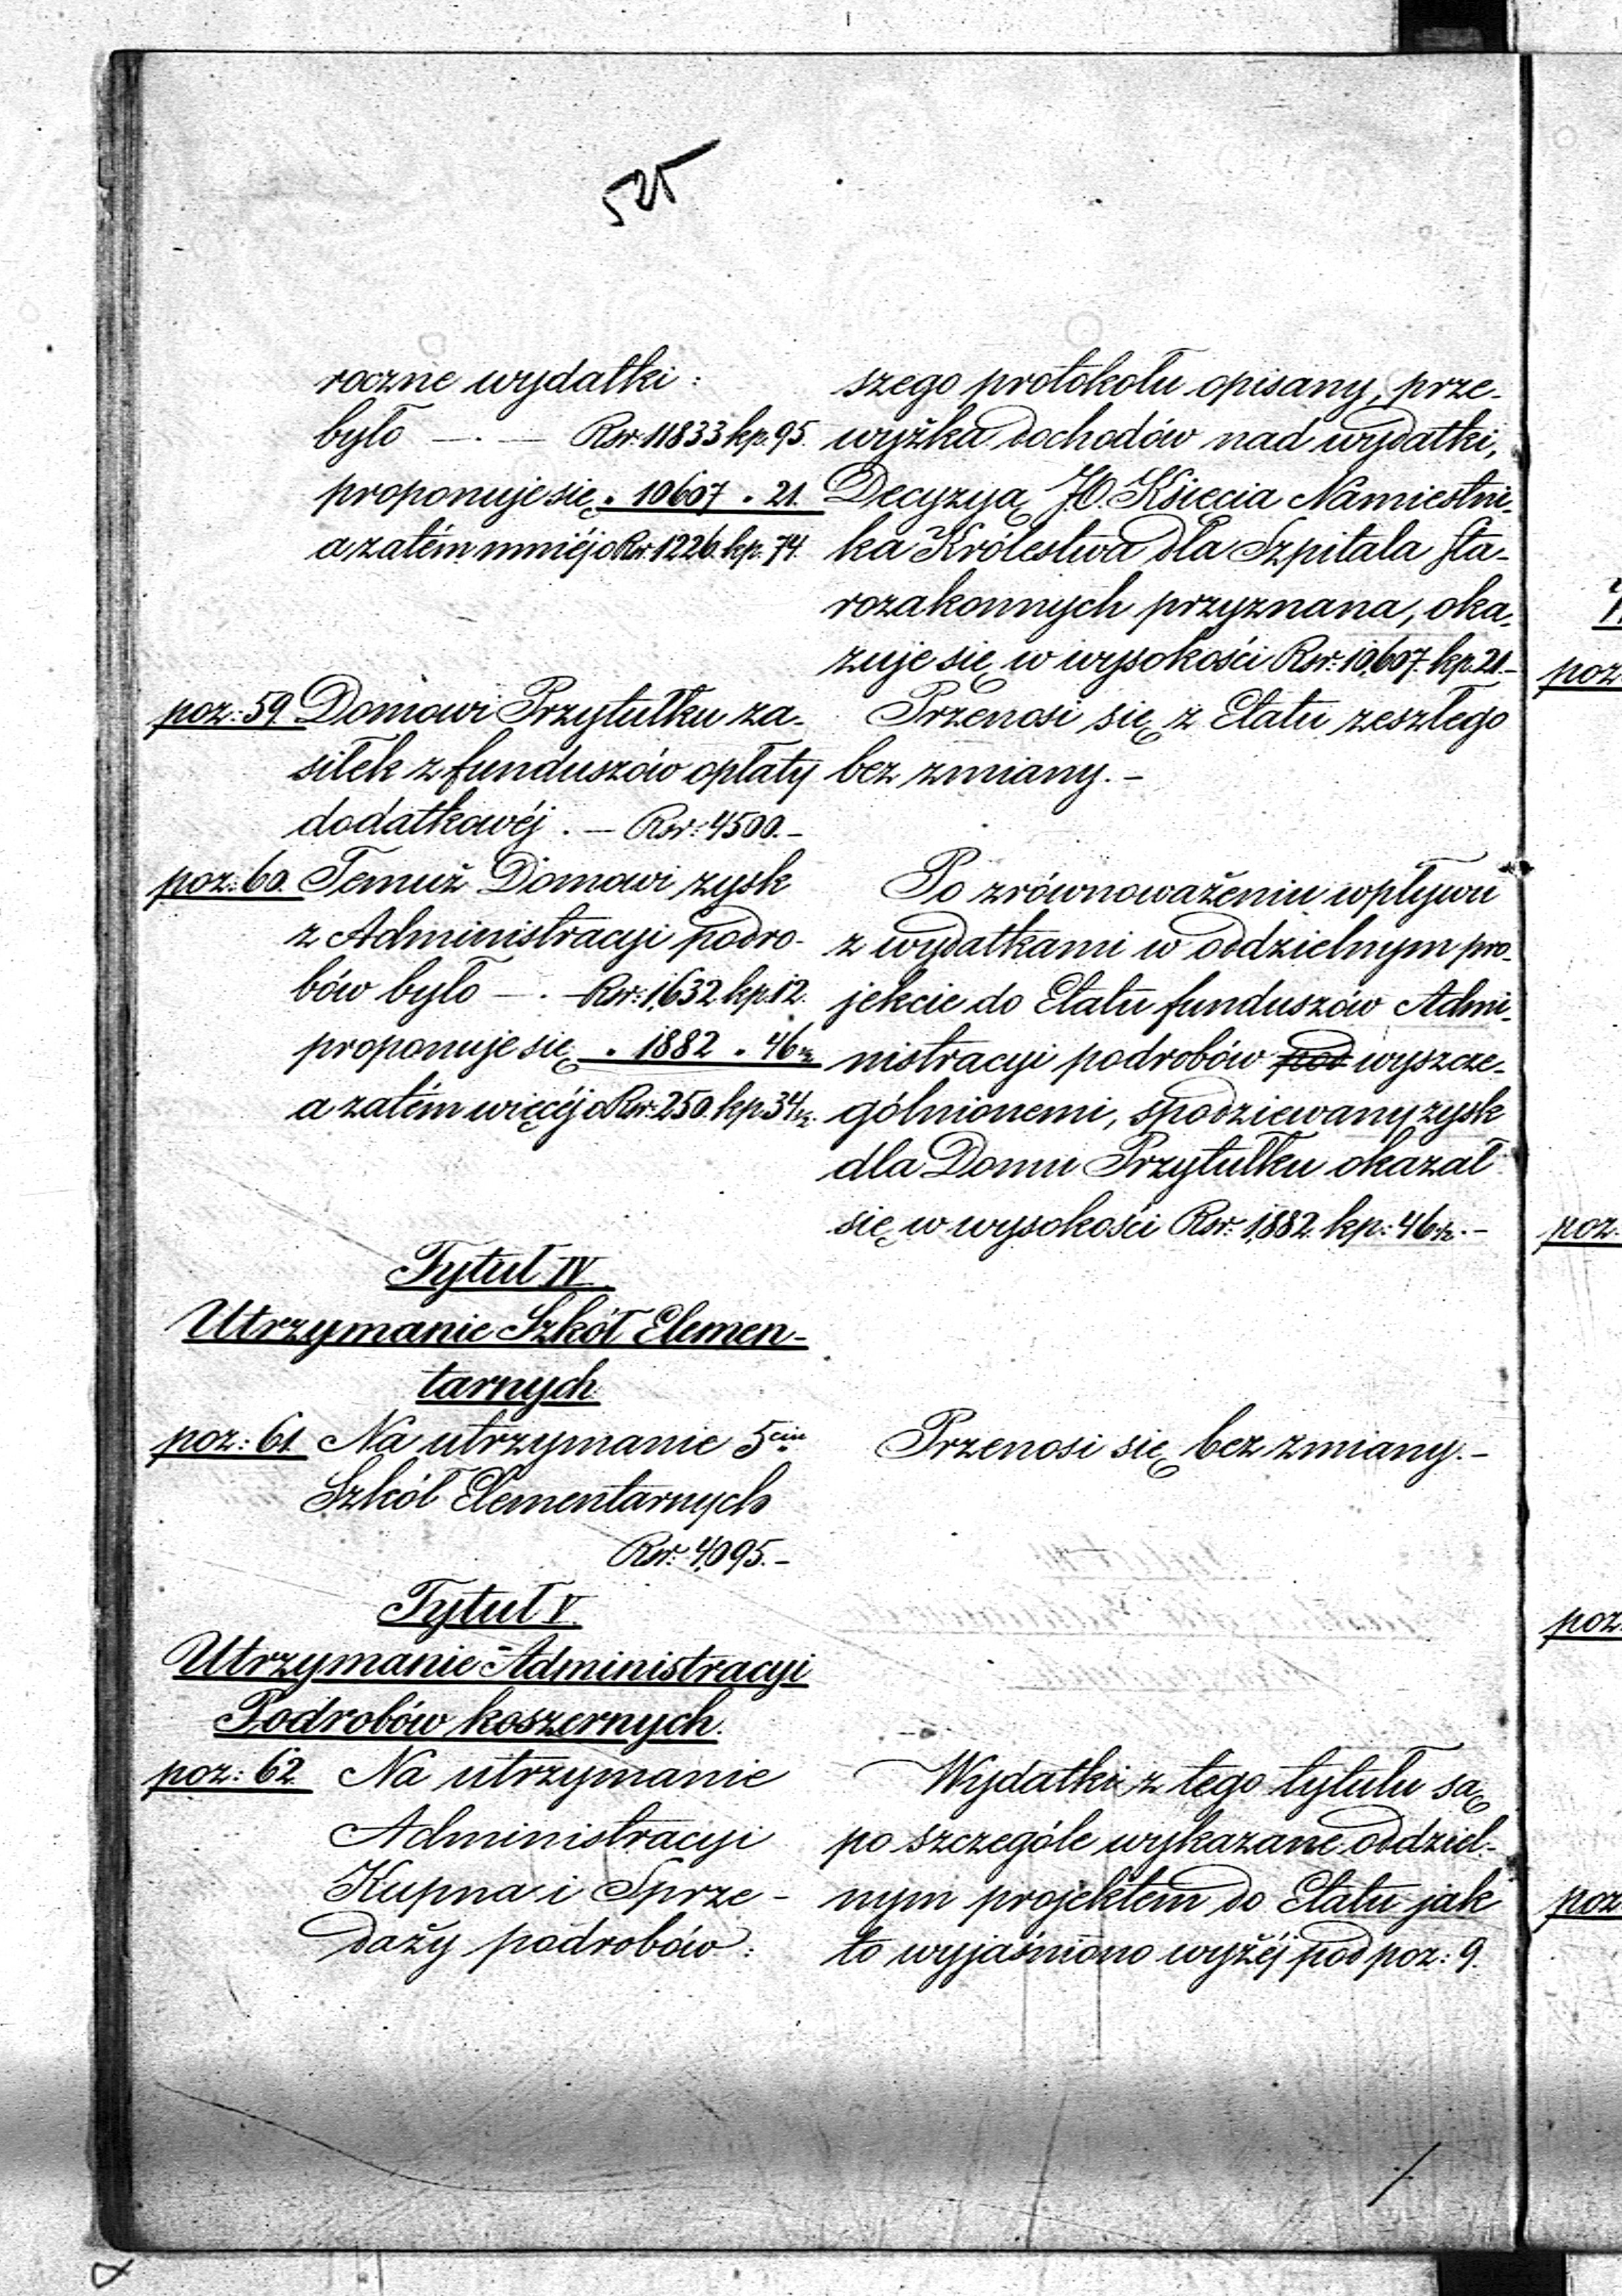 525
roczne wydatki:
było —.— Rsr. 11833 kp. 95.
proponuje się " 10607 " 21.
a zatém mniéj o Rsr. 1226. kp. 74.
poz: 59. Domowi Przytułku za-
siłek z funduszów opłaty
dodatkowéj. — Rsr: 4500.-
poz: 60. Temuż Domowi zysk
z Administracyi podro-
bów było —.— Rsr: 1,632. kp. 12.
proponuje się " 1882 " 46½
a zatém więcéj o Rsr: 250. kp. 34½.
Tytuł IV.
Utrzymanie Szkół Elemen-
tarnych
poz: 61. Na utrzymanie 5ciu
Szkół Elementarnych
Rsr. 4,095.-
Tytuł V.
Utrzymanie Administracyi
Podrobów koszernych.
poz: 62. Na utrzymanie
Administracyi
Kupna i Sprze-
daży podrobów:
szego protokołu opisany, prze-
wyżka dochodów nad wydatki,
Decyzyą J.O. Księcia Namiestni-
ka Królestwa dla Szpitala Sta-
rozakonnych przyznana, oka-
zuje się w wysokości Rsr: 10,607. kp. 21.-
Przenosi się z Etatu zeszłego
bez zmiany.-
Po zrównoważeniu wpływu
z wydatkami w oddzielnym pro-
jekcie do Etatu funduszów Admi-
nistracyi podrobów pod wyszcze-
gólnionemi, spodziewany zysk
dla Domu Przytułku okazał
się w wysokości Rsr: 1,882. kp: 46½.-
Przenosi się bez zmiany.-
Wydatki z tego tytułu są
po szczególe wykazane oddziel-
nym projektem do Etatu jak
to wyjaśniono wyżéj pod poz: 9.
poz
poz.
poz:
poz: